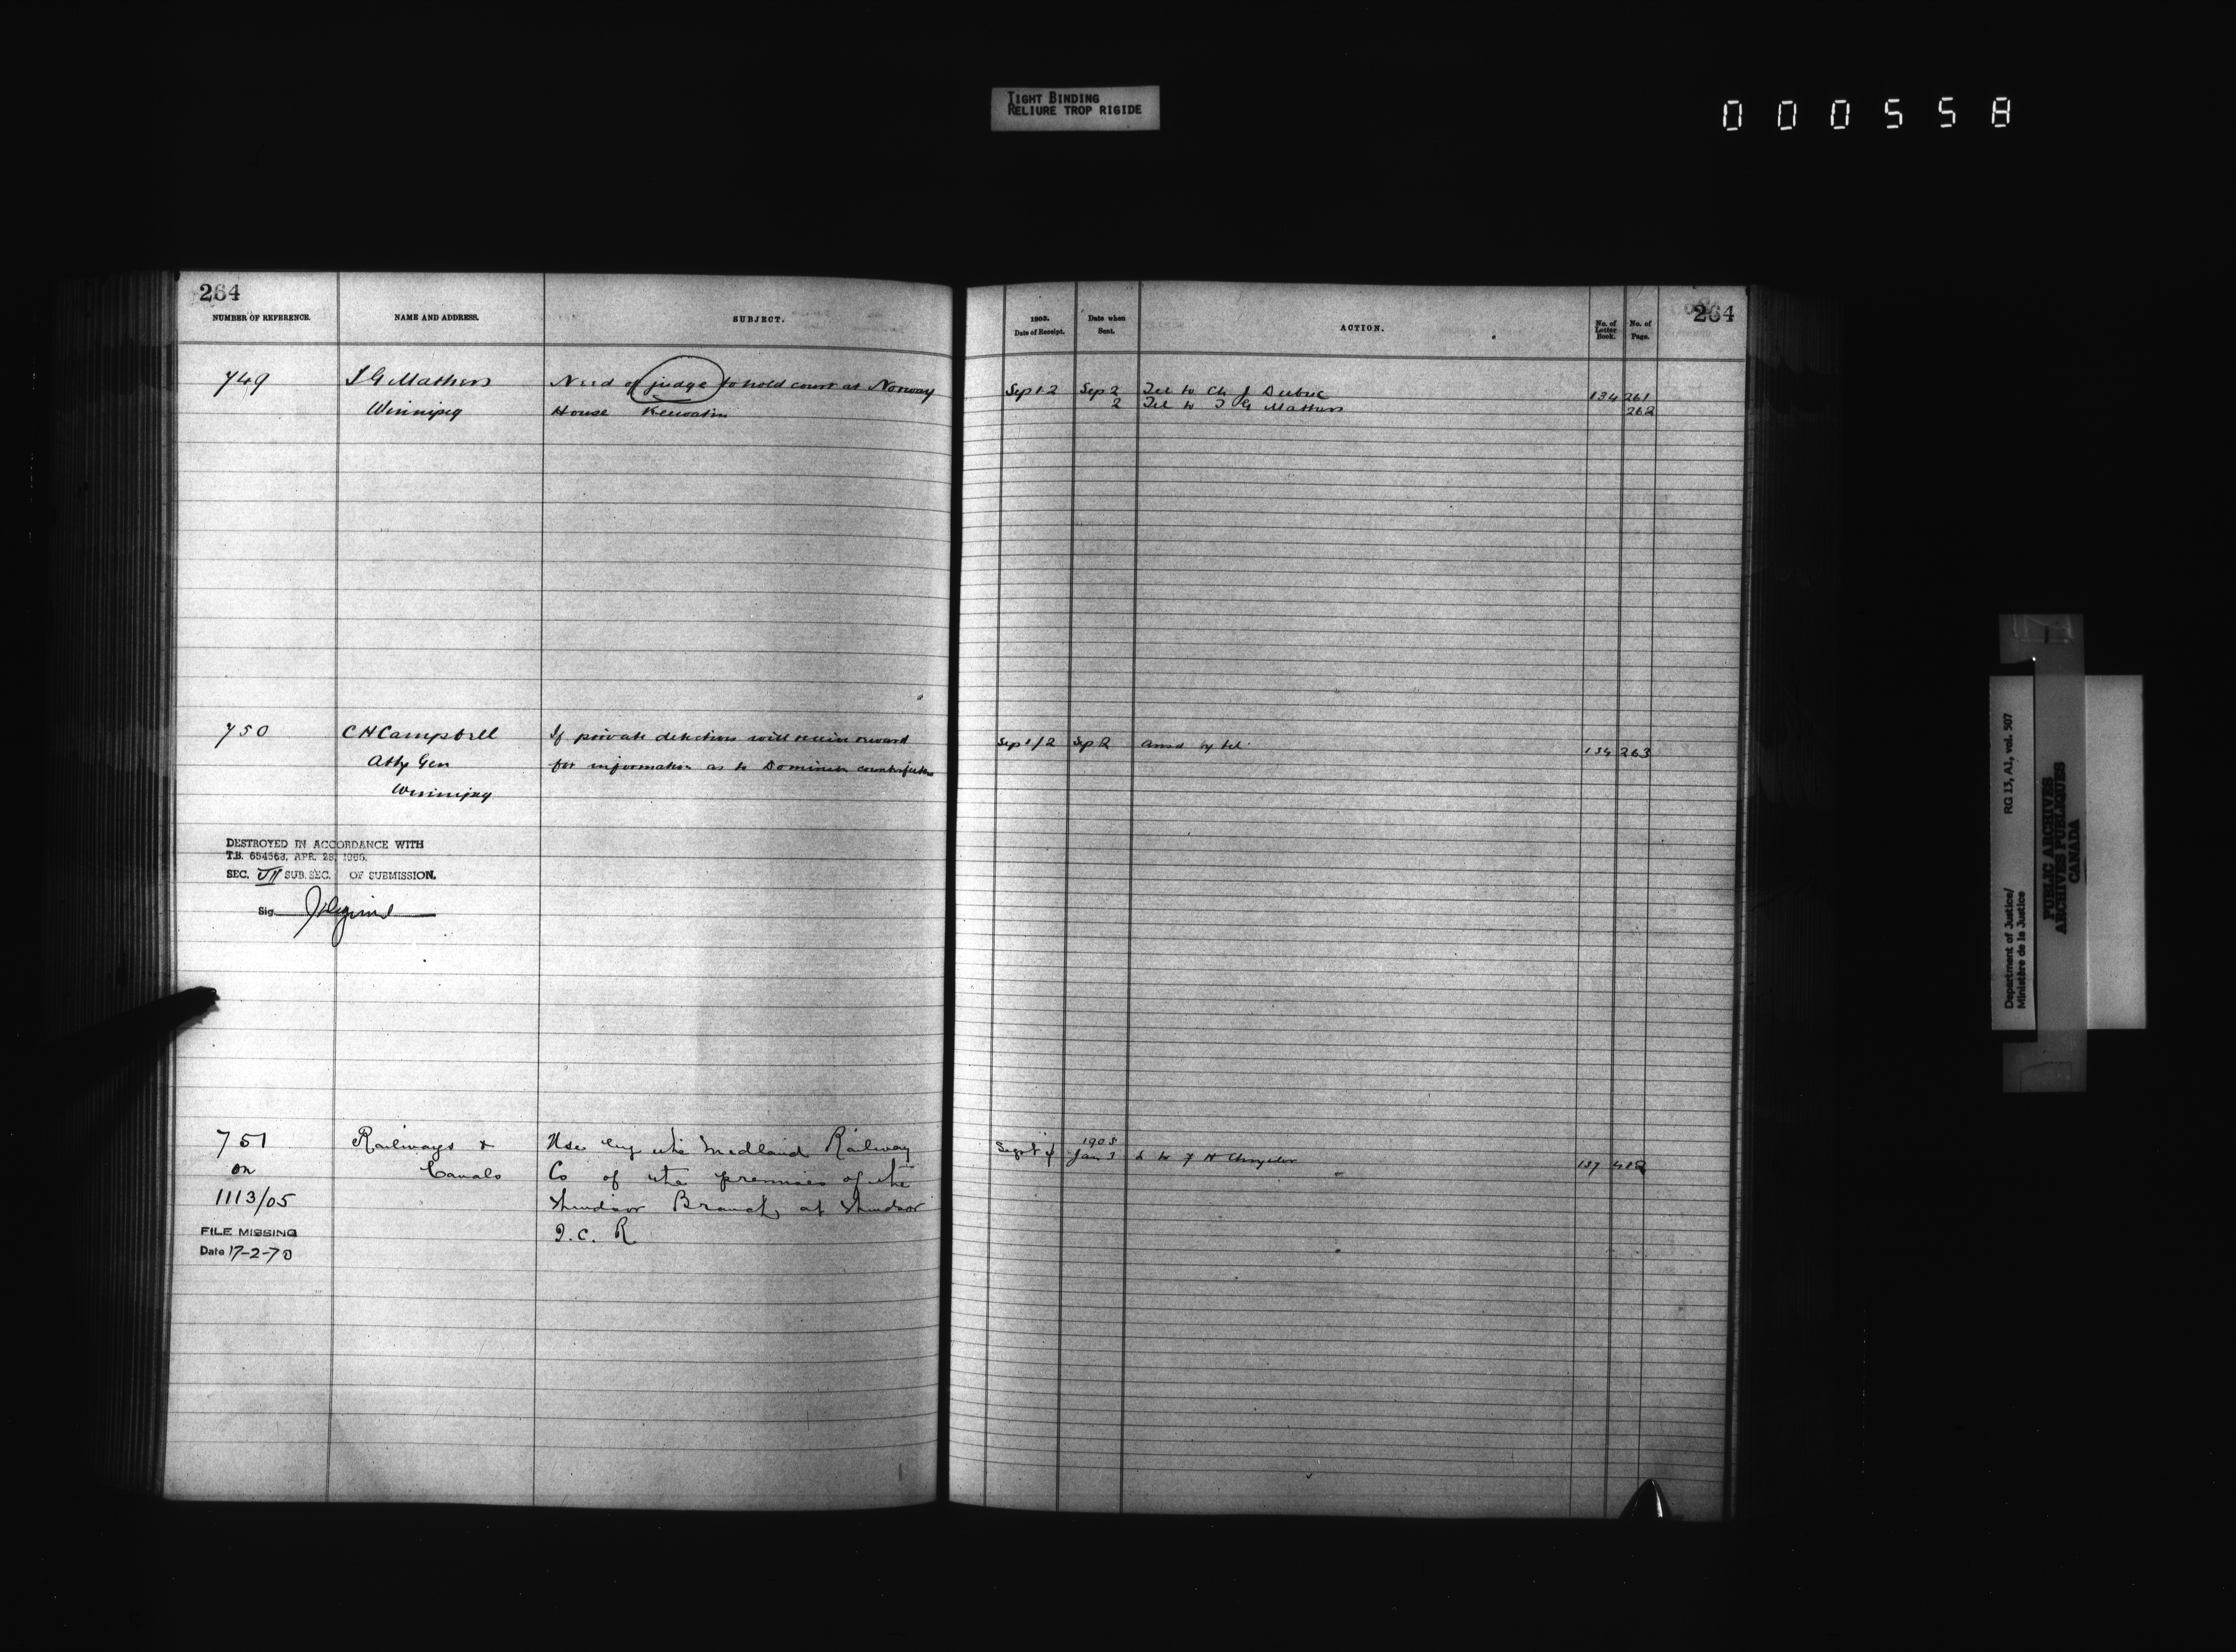 TIGHT BINDING
RELIURE TROP RIGIDE
000558
264
NUMBER OF REFERENCE.
NAME AND ADDRESS.
SUBJECT.
749
T G Mathers
Winnipeg
Need of judge to hold court at Norway
House Keewatin
750
C H Campbell
Atty Gen
Winnipeg
If private detectives will receive reward
for information as to Dominion
DESTROYED IN ACCORDANCE WITH
T.B. 654563, APR. 28, 1966.
SEC. VII SUB. SEC. OF SUBMISSION.
Sig.
751
on
1113/05
FILE MISSING
Date 17-2-70
Railways &
Canals
Use by the Midland Railway
Co of the premises of the
Windsor Branch at Windsor
I.C. R
264
1903.
Date of Receipt.
Date when
Sent.
ACTION.
No. of
Letter
Book.
No. of
Page.
Sep 1 2 Sep 2 Tel to Ch J Dubuc 134 261
2 Tel to T G Mathers 262
Sep 1/2 Sep 2 Ansd by tel 134 263
Sept 4
1905
Jan 3
L to F H Chrysler 137
Department of Justice/
Ministère de la Justice
RG 13, A1, vol. 507
PUBLIC ARCHIVES
ARCHIVES PUBLIQUES
CANADA